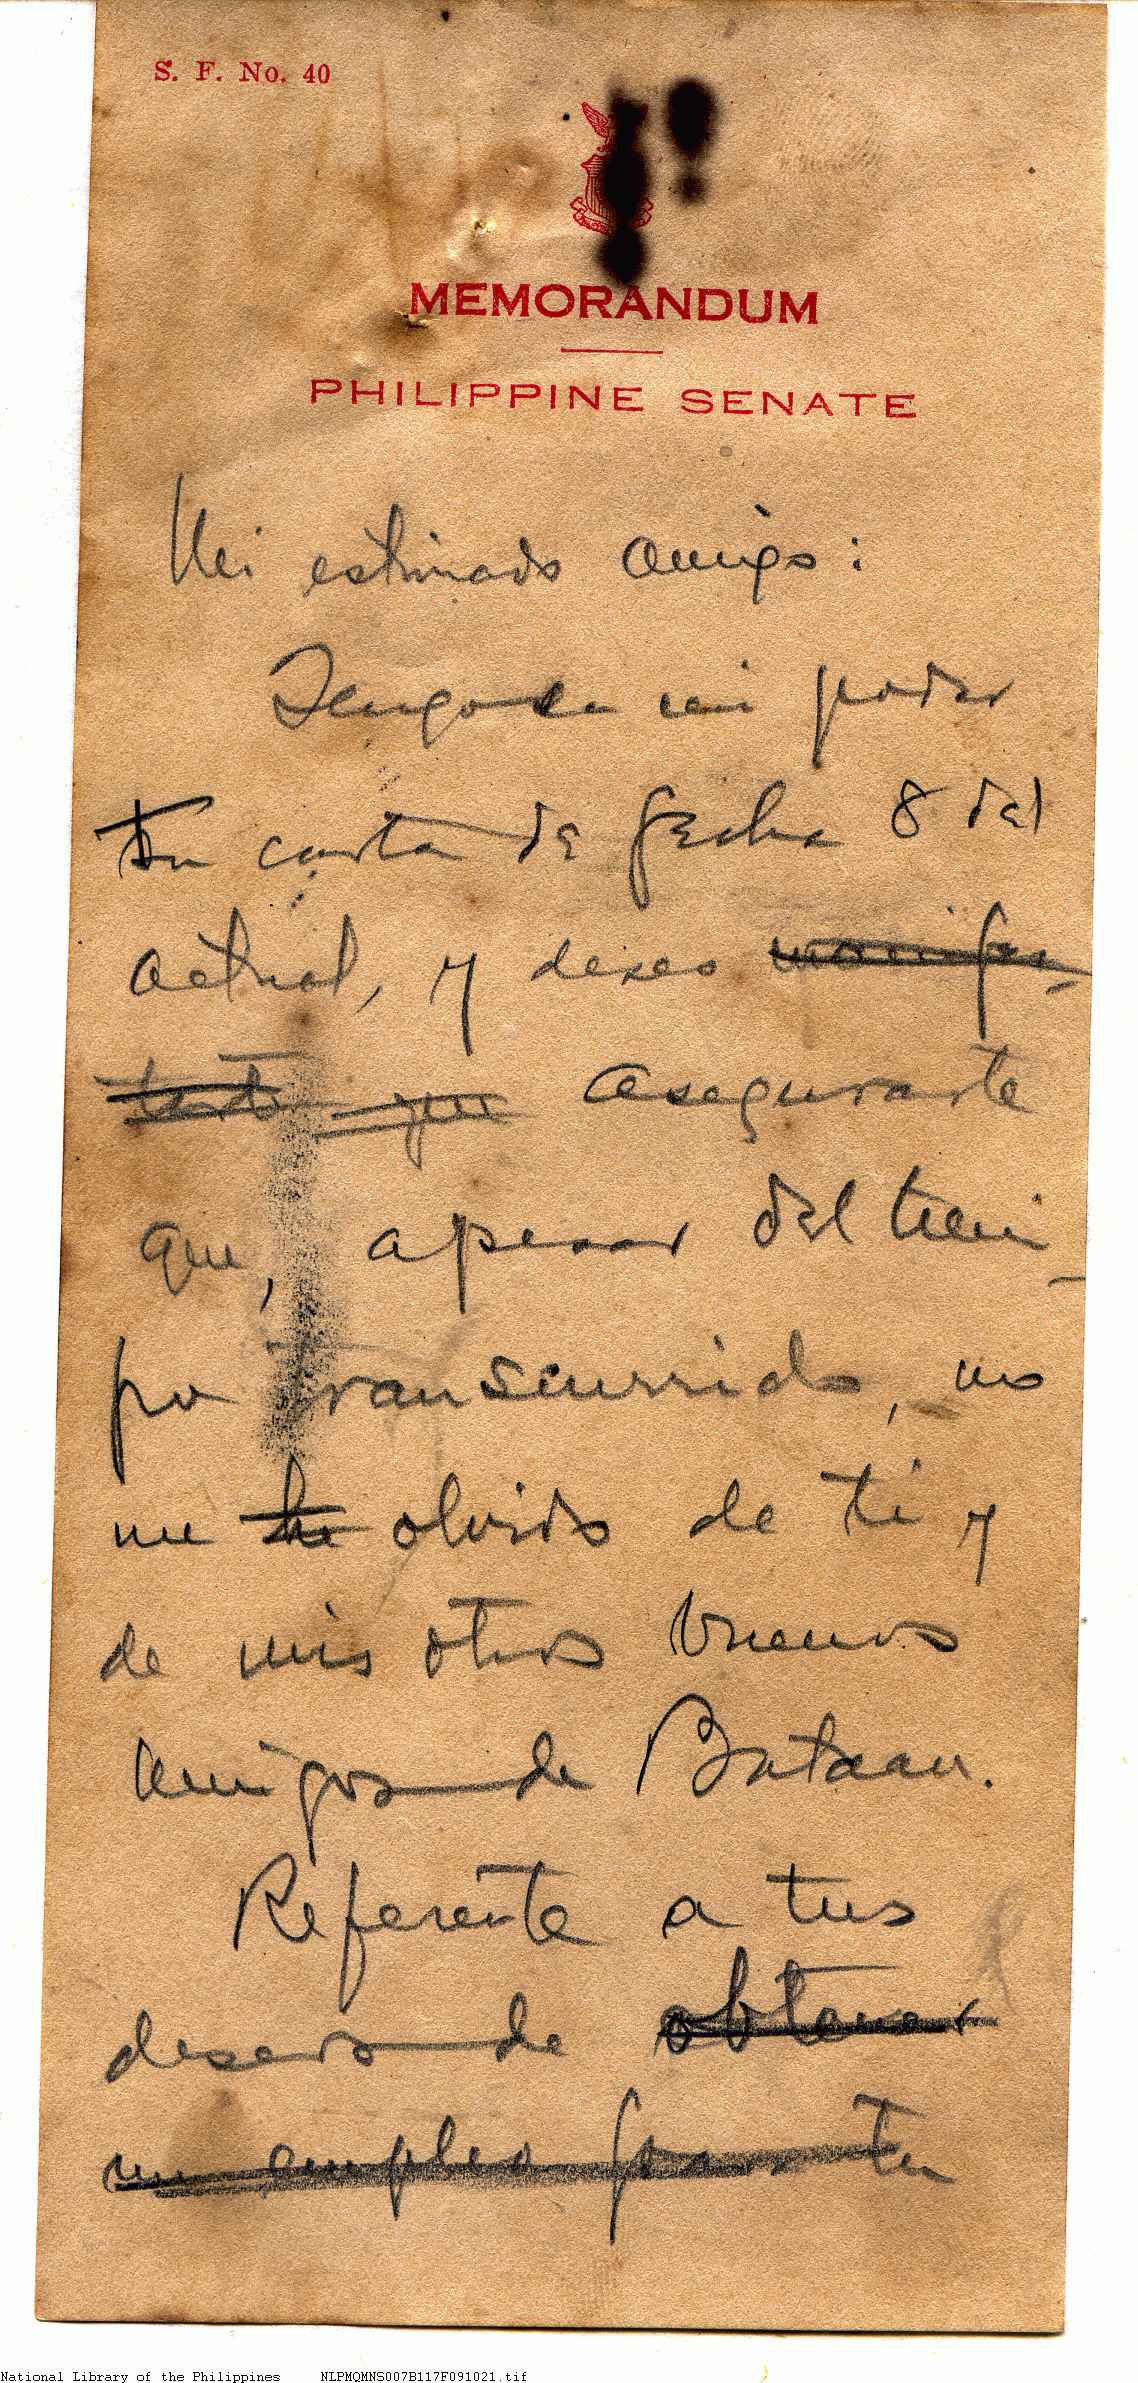 S. F. No. 40
MEMORANDUM
PHILIPPINE SENATE
Mi estimado amigo:
Tengo en mi poder
tu carta de fecha 8 del
actual, y deseo manifes-
tarte que asegurarte
que, apesar del tiem-
po transcurrido, no
me he olvido de ti y
de mis otros buenos
amigos de Bataan.
Referente a tus
deseos de obtener
un empleo para tu
National Library of the Philippines NLPMQMNS007B117F091021.tif